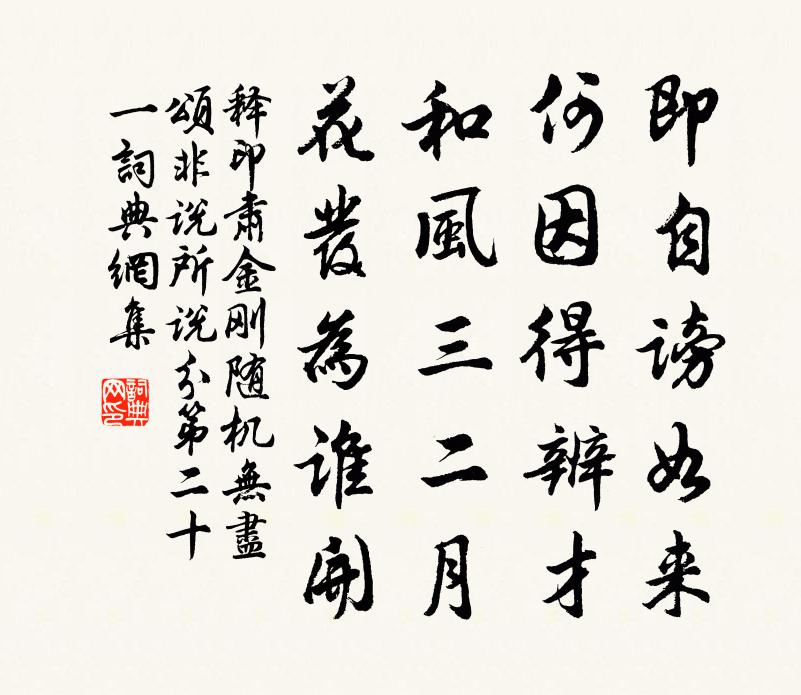 即自謗如来
何因得辨才
和風三二月
花發為誰開
释印肅金刚随机無盡
頌非说所说分第二十
一詞典網集
詞典
网印